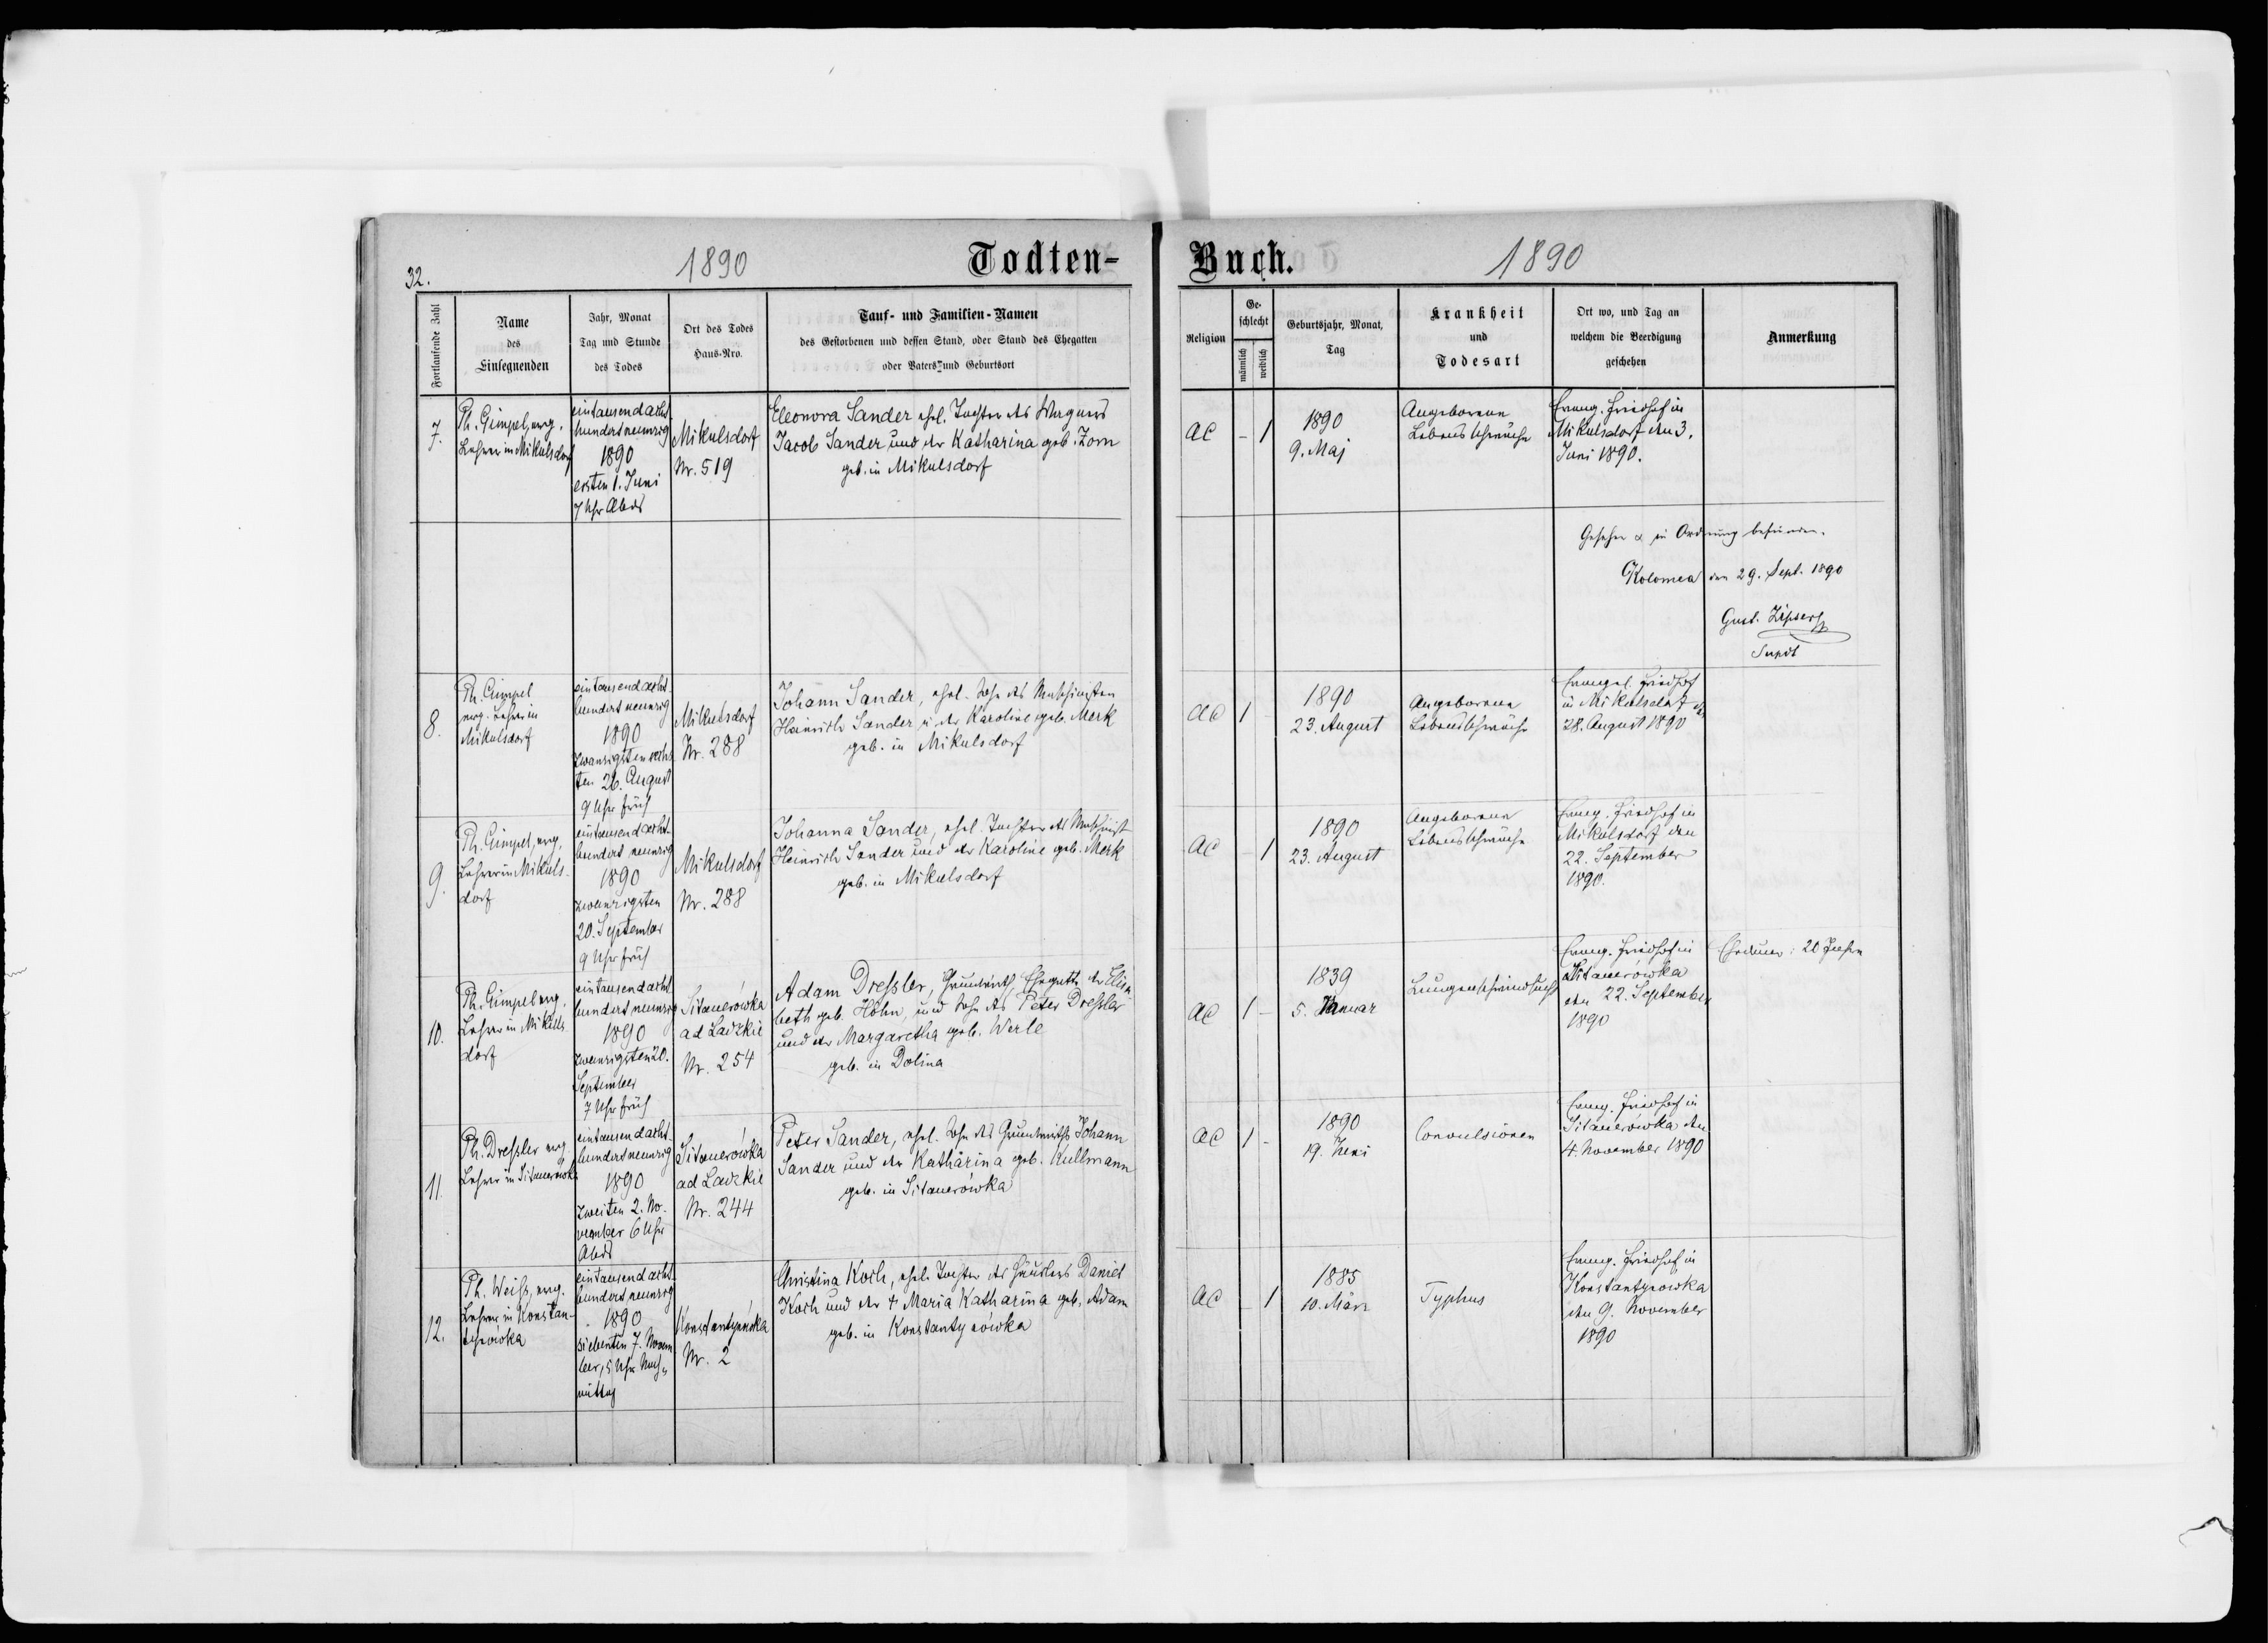 32.
1890
Todten-
Buch.
1890
Fortlaufende Zahl
Name
des
Einsegnenden
Jahr, Monat
Tag und Stunde
des Todes
Ort des Todes
Haus-Nro.
Tauf- und Familien-Namen
des Gestorbenen und dessen Stand, oder Stand des Ehegatten
oder Vaters und Geburtsort
Religion
Ge-
schlecht
männlich
weiblich
Geburtsjahr, Monat,
Tag
Krankheit
und
Todesart
Ort wo, und Tag an
welchem die Beerdigung
geschehen
Anmerkung
7.
Ph. Gimpel, evg.
Lehrer in Mikulsdorf
eintausendacht-
hundertneunzig
1890
ersten 1. Juni
7 Uhr Abds
Mikulsdorf
Nr. 519
Eleonora Sander ehel. Tochter des Wagners
Jacob Sander und der Katharina geb. Zorn
geb. in Mikulsdorf
AC
- 1
1890
9. Maj
Angeborene
Lebensschwäche
Evang. Friedhof in
Mikulsdorf den 3.
Juni 1890.
Gesehen & in Ordnung befunden.
Kolomea den 29. Sept. 1890
Gust. Zipser
Supdt
8.
Ph. Gimpel
evg. Lehrer in
Mikulsdorf
eintausendacht-
hundert neunzig
1890
zwanzigsten sechs
ten 26. August
9 Uhr früh
Mikulsdorf
Nr. 288
Johann Sander, ehel. Sohn des Maschinisten
Heinrich Sander u. der Karoline geb. Merk
geb. in Mikulsdorf
AC
1 -
1890
23. August
Angeborene
Lebensschwäche
Evangel. Friedhof
in Mikulsdorf den
28. August 1890
9.
Ph. Gimpel, evg.
Lehrer in Mikuls-
dorf
eintausendacht-
hundert neunzig
1890
zwanzigsten
20. September
9 Uhr früh
Mikulsdorf
Nr. 288
Johanna Sander, ehel. Tochter des Maschinist
Heinrich Sander und der Karoline geb. Merk
geb. in Mikulsdorf
AC
- 1
1890
23. August
Angeborene
Lebensschwäche
Evang. Friedhof in
Mikulsdorf den
22. September
1890.
10.
Ph. Gimpel evg.
Lehrer in Mikuls
dorf
eintausendacht
hundert neunzig
1890
zwanzigsten 20.
September
7 Uhr früh
Sitauerówka
ad Ladzkie
Nr. 254
Adam Dressler, Grundwirth, Ehegatte der Elisa-
beth geb. Höhn, und Sohn des Peter Dressler
und der Margaretha geb. Werle
geb. in Dolina
AC
1 -
1839
5. Januar
Lungenschwindsucht
Evang. Friedhof in
Sitauerówka
den 22. September
1890
Ehedauer: 20 Jahre
11.
Ph. Dressler evg.
Lehrer in Sitauerowka
eintausendacht-
hundert neunzig
1890
zweiten 2. No-
vember 6 Uhr
Abds
Sitauerówka
ad Ladzkie
Nr. 244
Peter Sander, ehel. Sohn des Grundwirths Johann
Sander und der Katharina geb. Kullmann
geb. in Sitauerówka
AC
1 -
1890
19. Juni
Convulsionen
Evang. Friedhof in
Sitauerówka den
4. November 1890
12.
Ph. Weiss, evg.
Lehrer in Konstan-
tynówka
eintausendacht-
hundert neunzig
1890
siebenten 7. Novem
ber, 5 Uhr Nach-
mittag
Konstantynówka
Nr. 2
Christina Koch, ehel. Tochter des Häuslers Daniel
Koch und der † Maria Katharina geb. Adam
geb. in Konstantynówka
AC
- 1
1885
10. März
Typhus
Evang. Friedhof in
Konstantynowka
den 9. November
1890